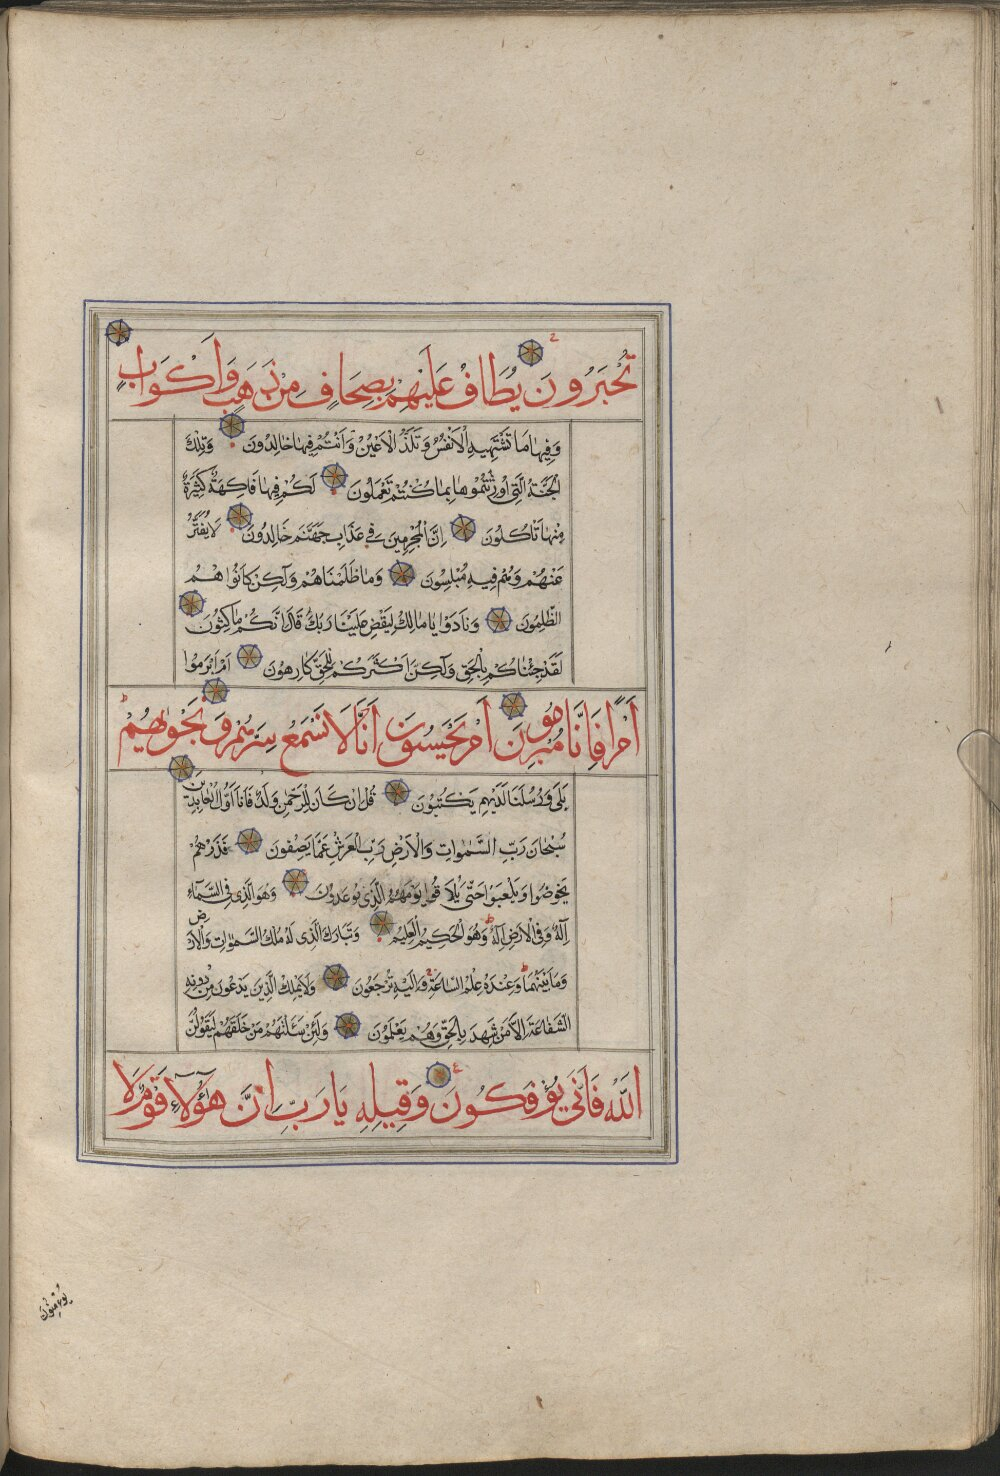 تُحْبَرُونَ يُطَافُ عَلَيْهِمْ بِصِحَافٍ مِنْ ذَهَبٍ وَاَكْوَابٍ
وَفِيهَا مَا تَشْتَهِيهِ الْاَنْفُسُ وَتَلَذُّ الْاَعْيُنُ وَاَنْتُمْ فِيهَا خَالِدُونَ وَتِلْكَ
الْجَنَّةُ الَّتِى اُورِثْتُمُوهَا بِمَا كُنْتُمْ تَعْمَلُونَ لَكُمْ فِيهَا فَاكِهَةٌ كَثِيرَةٌ
مِنْهَا تَاْكُلُونَ اِنَّ الْمُجْرِمِينَ فِى عَذَابِ جَهَنَّمَ خَالِدُونَ لَا يُفَتَّرُ
عَنْهُمْ وَهُمْ فِيهِ مُبْلِسُونَ وَمَا ظَلَمْنَاهُمْ وَلٰكِنْ كَانُوا هُمُ
الظَّلِمُونَ وَنَادَوْا يَا مَالِكُ لِيَقْضِ عَلَيْنَا رَبُّكَ قَالَ اِنَّكُمْ مَاكِثُونَ
لَقَدْ جِئْنَاكُمْ بِالْحَقِّ وَلٰكِنَّ اَكْثَرَكُمْ لِلْحَقِّ كَارِهُونَ اَمْ اَبْرَمُوا
اَمْرًا فَاِنَّا مُبْرِمُونَ اَمْ يَحْسَبُونَ اَنَّا لَا نَسْمَعُ سِرَّهُمْ وَنَجْوٰيهُمْ
بَلٰى وَرُسُلُنَا لَدَيْهِمْ يَكْتُبُونَ قُلْ اِنْ كَانَ لِلرَّحْمٰنِ وَلَدٌ فَاَنَا اَوَّلُ الْعَابِدِينَ
سُبْحَانَ رَبِّ السَّمٰوَاتِ وَالْاَرْضِ رَبِّ الْعَرْشِ عَمَّا يَصِفُونَ فَذَرْهُمْ
يَخُوضُوا وَيَلْعَبُوا حَتّٰى يُلَاقُوا يَوْمَهُمُ الَّذِى يُوعَدُونَ وَهُوَ الَّذِى فِى السَّمَآءِ
اِلٰهٌ وَفِى الْاَرْضِ اِلٰهٌ وَهُوَ الْحَكِيمُ الْعَلِيمُ وَتَبَارَكَ الَّذِى لَهُ مُلْكُ السَّمٰوَاتِ وَالْاَرْضِ
وَمَا بَيْنَهُمَا وَعِنْدَهُ عِلْمُ السَّاعَةِ وَاِلَيْهِ تُرْجَعُونَ وَلَا يَمْلِكُ الَّذِينَ يَدْعُونَ مِنْ دُونِهِ
الشَّفَاعَةَ اِلَّا مَنْ شَهِدَ بِالْحَقِّ وَهُمْ يَعْلَمُونَ وَلَئِنْ سَئَلْتَهُمْ مَنْ خَلَقَهُمْ لَيَقُولُنَّ
اللّٰهُ فَاَنّٰى يُؤْفَكُونَ وَقِيلِهِ يَا رَبِّ اِنَّ هٰؤُلَآءِ قَوْمٌ لَا
يُؤْمِنُونَ